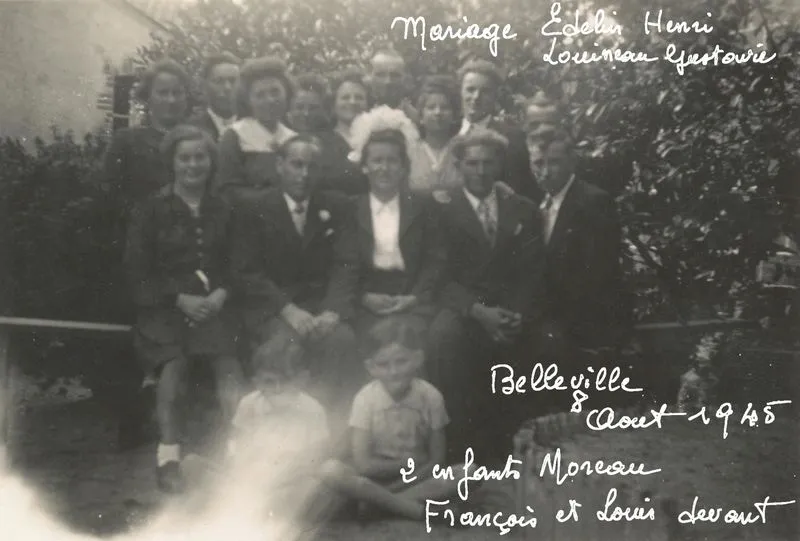 Mariage Edelin Henri
Louineau Gustavie
Belleville
8 Aout 1945
2 enfants Moreau
François et Louis devant